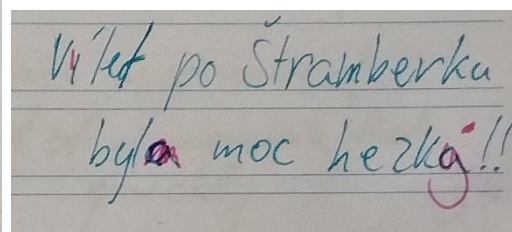 Výlet po Štramberku
byla moc hezký!!